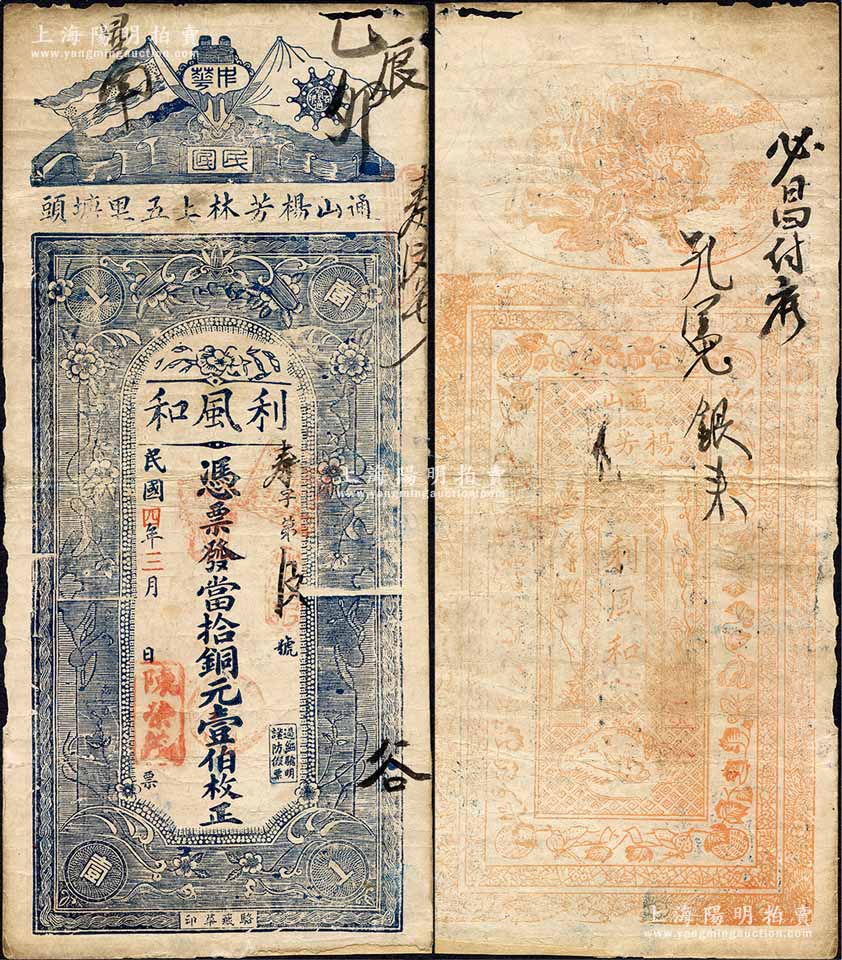 上海陽明拍賣
www.yangmingauction.com
中華
民國
乙卯
通山楊芳林上五里塘頭
壹
利風和
憑票發當拾銅元壹伯枚正
壽字第
號
民國四年三月
日
票
過細驗明
謹防假票
谷
壹
上海陽明拍賣
www.yangmingauction.com
必昌付
孔萬銀來
通山
楊芳
利風和
上海陽明拍賣
www.yangmingauction.com